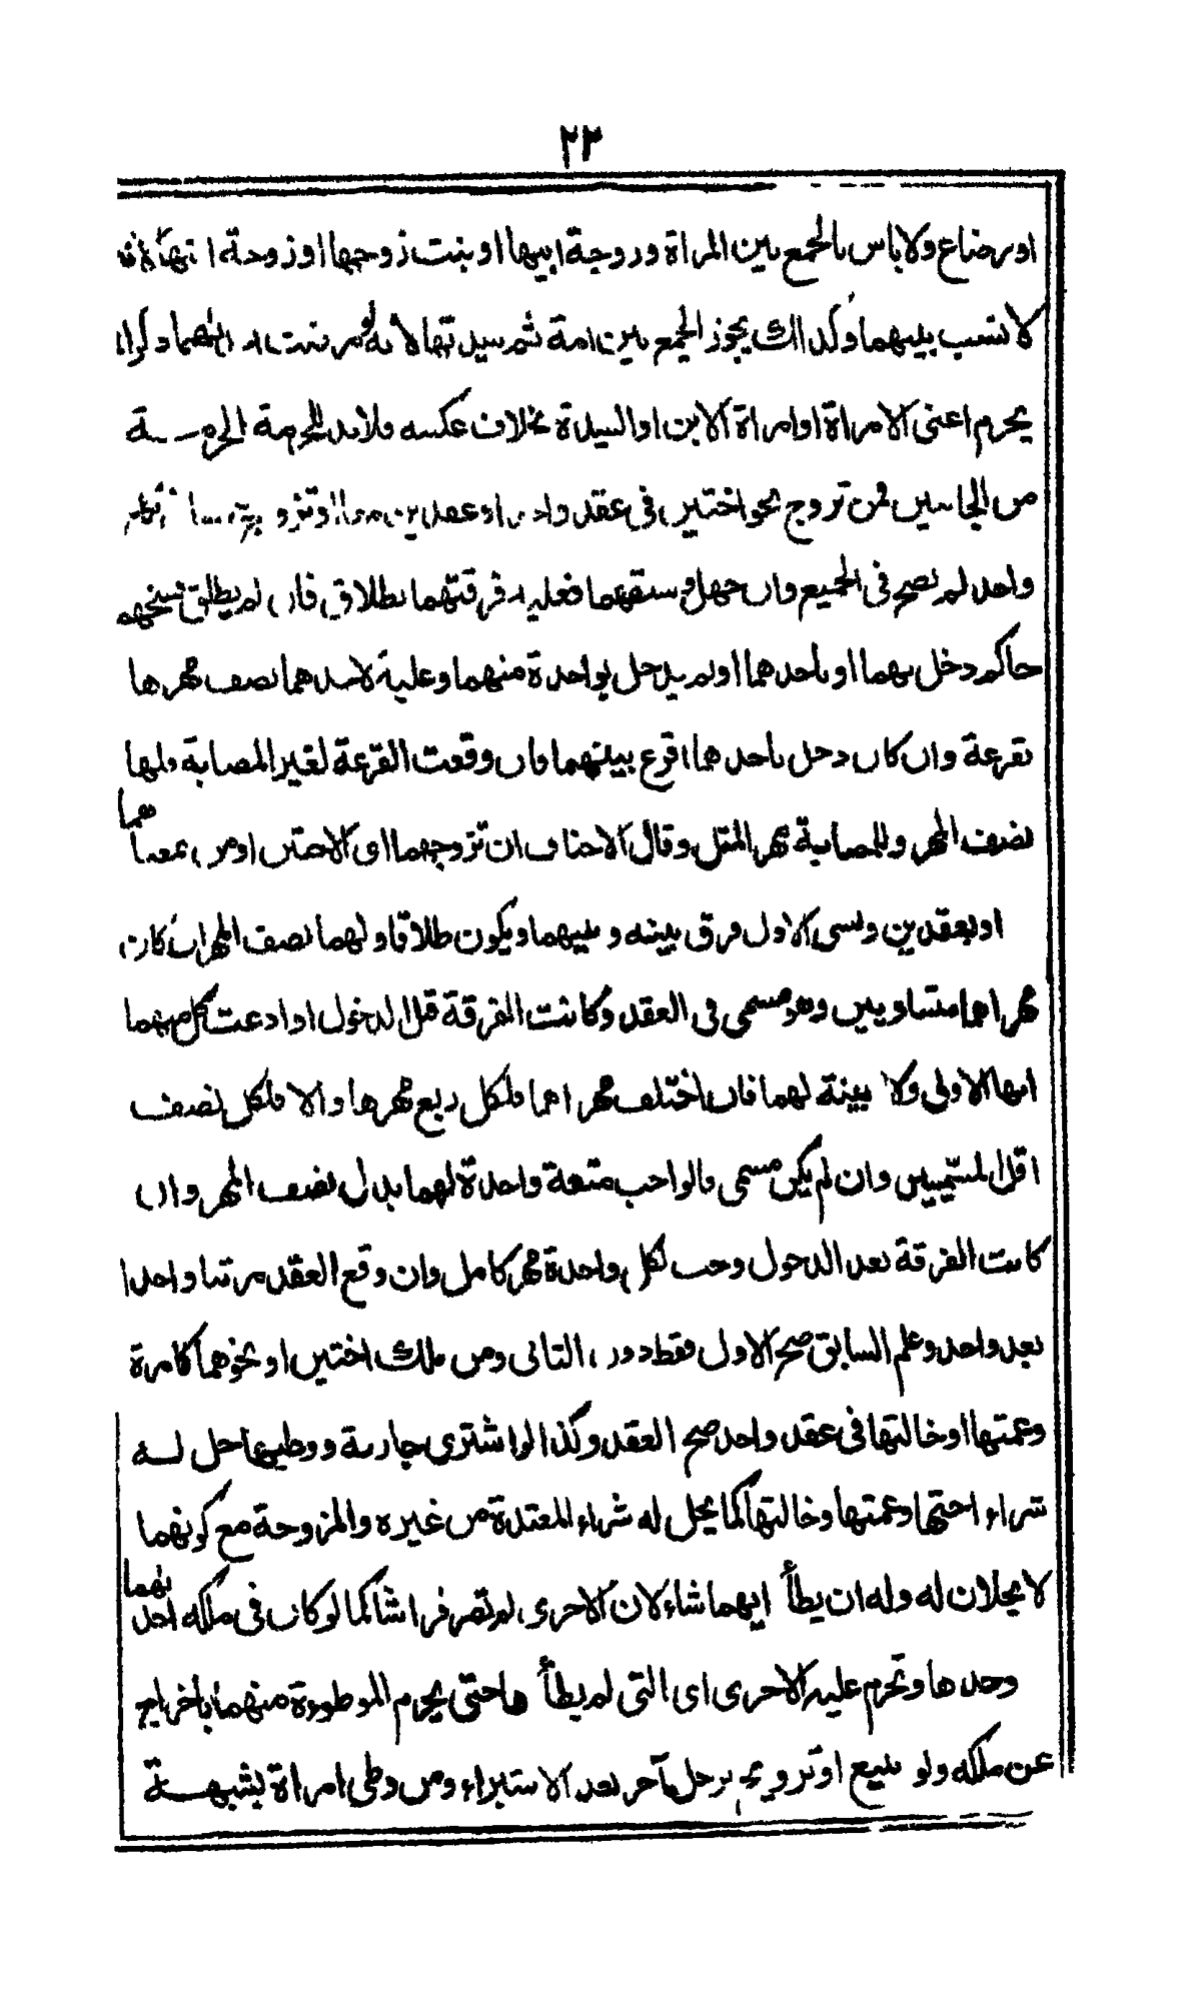 ٢٣
او رضاع ولا باس بالجمع بين المراة وزوجة ابيها او بنت زوجها او زوجة
لا نسب بينهما وكذالك يجوز الجمع بين امة ثم سيدتها لانه لو
يحرم اعنى الامراة او امراة الابن او السيدة بخلاف عكسه فلابد للحرمة الحرمـــة
من الجانبين فمن تزوج نحو اختين فى عقد واحد او عقدين
واحد لم يصح فى الجميع وان جهل سبقهما فعليه فرقتهما بطلاق فان لم يطلق فسخهما
حاكم دخل بهما او باحدهما او لم يدخل بواحدة منهما وعلية لاحدهما نصف مهرها
بقرعة وان كان دخل باحدهما اقرع بينهما فان وقعت القرعة لغير المصابة فلها
نصف المهر وللمصابة مهر المثل وقال الاحناف ان تزوجهما اى الاختين او من بمعناهما
او بعقدين ونسى الاول فرق بينه وبينهما ويكون طلاقا ولهما نصف المهر ان كان
مهراهما متساويين وهو مسمى فى العقد وكانت الفرقة قبل الدخول او ادعت كل منهما
انها الاولى ولا بينة لهما فان اختلف مهراهما فلكل ربع مهرها والا فلكل نصف
اقل المسميين وان لم يكن مسمى فالواجب متعة واحدة لهما بدل نصف المهر وان
كانت الفرقة بعد الدخول وجب لكل واحدة مهر كامل وان وقع العقد مرتبا واحدا
بعد واحد وعلم السابق صح الاول فقط دون الثانى ومن ملك اختين او نحوهما كامرة
وعمتها او خالتها فى عقد واحد صح العقد وكذا لو اشترى جارية ووطيها حل لـــه
شراء اختها وعمتها وخالتها كما يحل له شراء المعتدة من غيره والمزوجة مع كونهما
لا يحلان له وله ان يطأ ايهما شاء لان الاخرى لم تصر فراشا كما لو كان فى ملكه احدهما
وحدها وتحرم عليه الاخرى اى التى لم يطأ ها حتى يحرم الموطوءة منهما باخراج
عن ملكه ولو ببيع او تزويج برجل آخر بعد الاستبراء ومن وطى امراة بشبهـــة